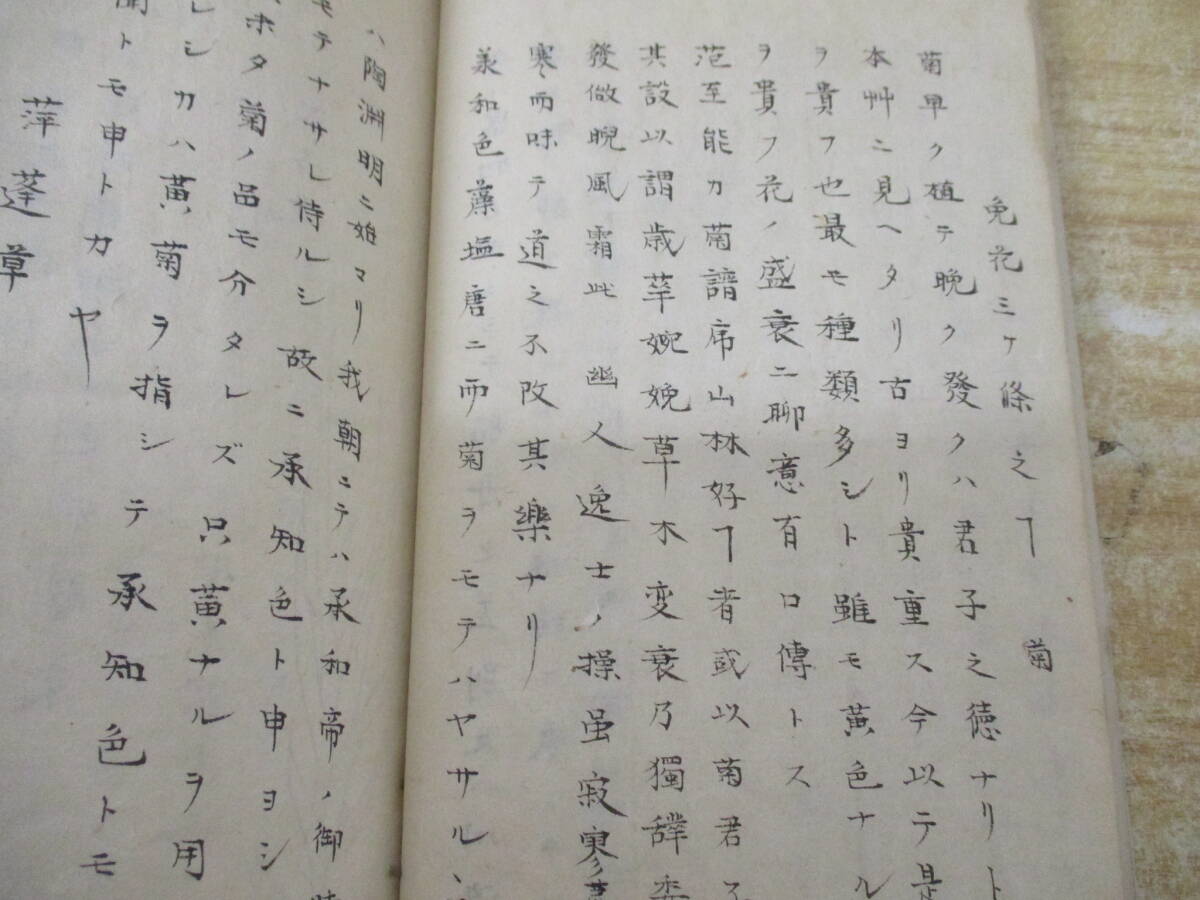 免花三ケ條之ヿ 菊
菊早ク植テ晩ク發クハ君子之徳ナリト
本艸ニ見ヘタリ古ヨリ貴重ス今以テ是
ヲ貴フ也最モ種類多シト雖モ黄色ナル
ヲ貴フ花ノ盛衰ニ聊意有口傳トス
范至能カ菊譜序山林好ヿ者或以菊君子
其設以謂歳華婉娩草木変衰乃獨
發傲睨風霜此幽人逸士ノ操虽寂寥
寒而味テ道之不改其樂ナリ
美和色藻塩唐ニ而菊ヲモテハヤサル丶
ハ陶渊明ニ始マリ我朝ニテハ承和帝ノ御時
モテナサレ侍ルシ故ニ承知色ト申ヨシ
ホタ菊ノ品モ分タレズ只黄ナルヲ用
レシカハ黄菊ヲ指シテ承知色トモ
聞トモ申トカヤ
萍蓬草